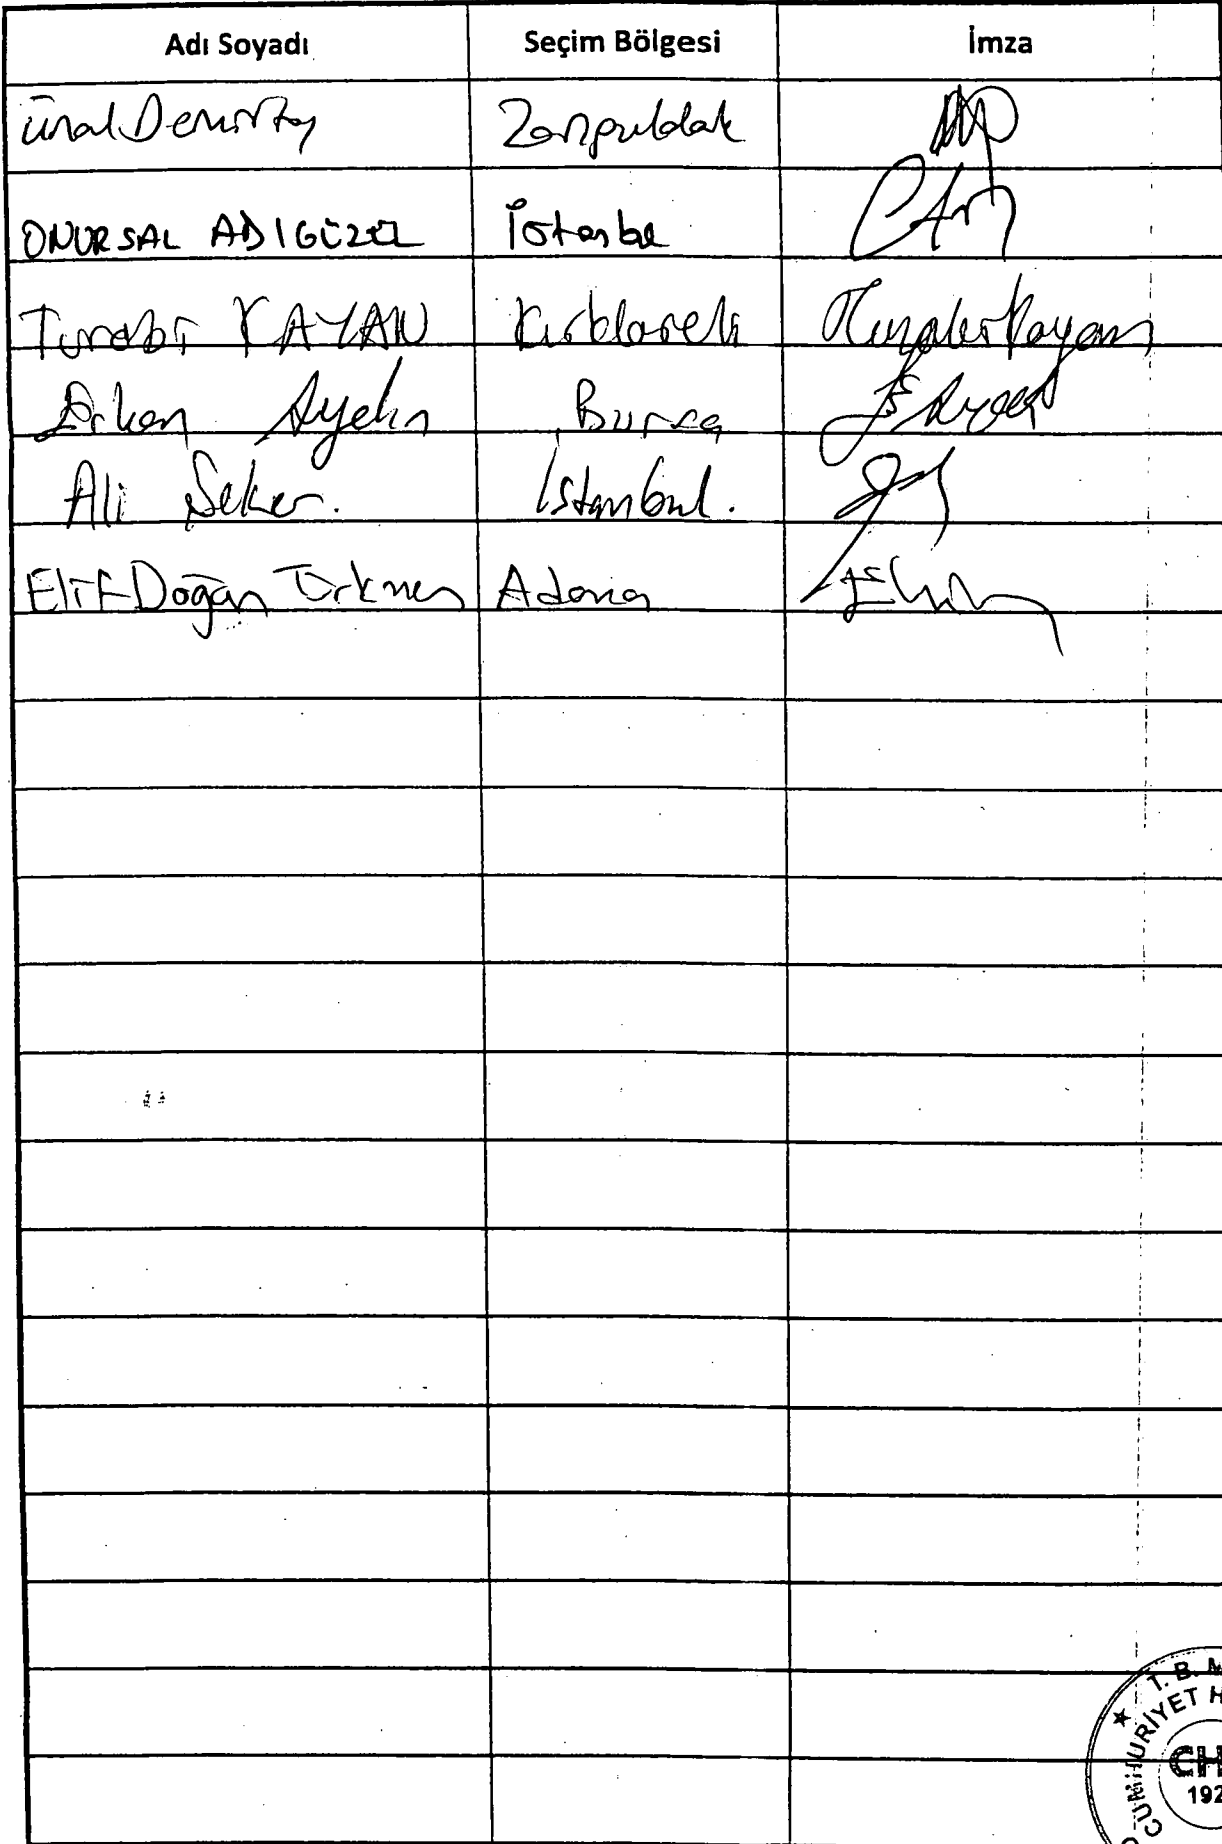 Adı Soyadı Seçim Bölgesi İmza
Ünal Demirtaş Zonguldak
ONURSAL ADIGÜZEL İstanbul
Turabi KAYAN Kırklareli Turabi Kayan
Erkan Aydın Bursa
Ali Şeker. İstanbul.
Elif Doğan Türkmen Adana
T. B. M
CUMHURİYET H
CH
192